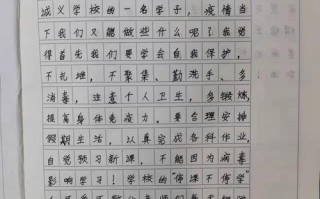 诚义学校的一名学子，疫情当
下我们又能做些什么呢？我觉
得首先我们要学会自我保护，
不扎堆，不聚集、勤洗手、多
消毒，注意个人卫生，多锻炼，
提高身体免疫力。要合理安排
假期生活，认真完成各科作业，
自觉预习新课，不能因为病毒
影响学习！学校的“停课不停学”